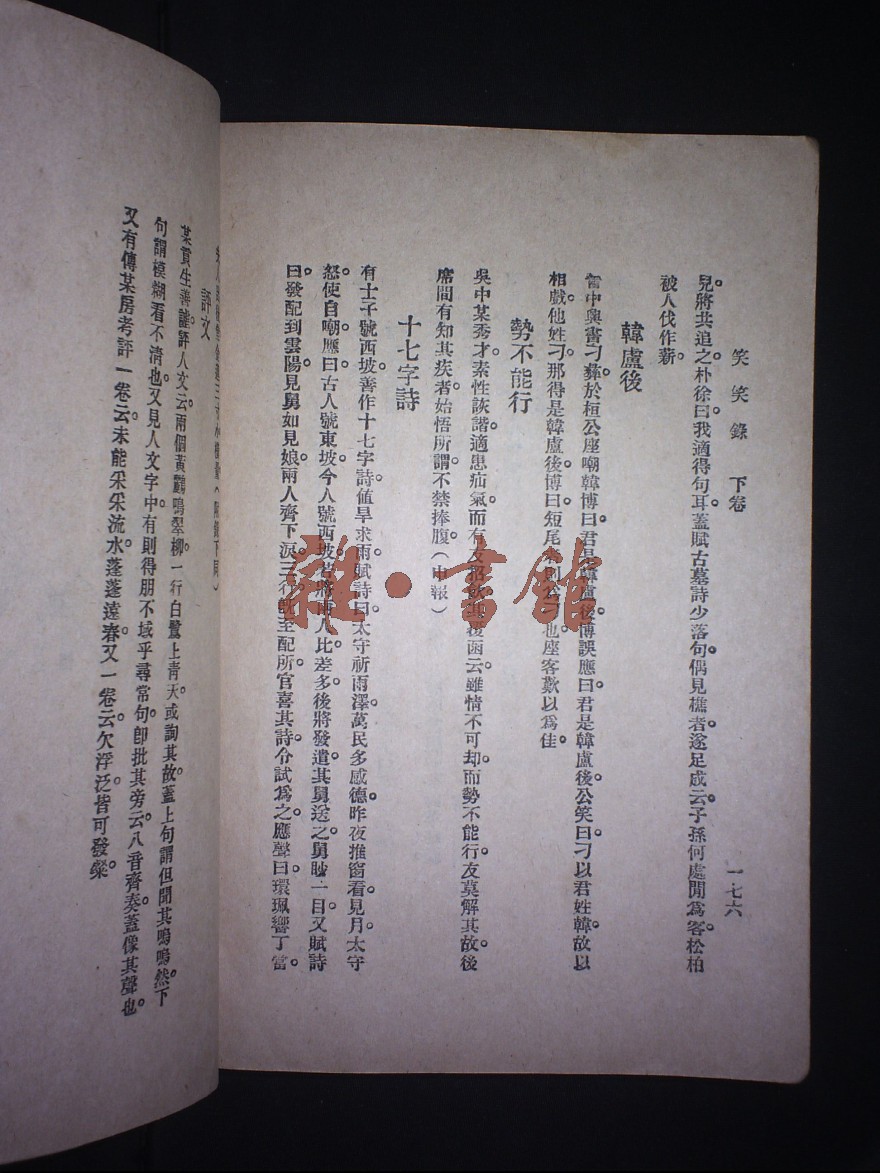 笑笑錄 下卷
一七六
兒將共追之朴徐曰我適得句耳蓋賦古墓詩少落句偶見樵者遂足成云子孫何處閒爲客松柏
被人伐作薪
韓盧後
晉中興書刁彝於桓公座嘲韓博曰君是韓盧後博誤應曰君是韓盧後公笑曰刁以君姓韓故以
相戲他姓刁那得是韓盧後博曰短尾者則爲刁也座客歎以爲佳
勢不能行
吳中某秀才素性詼諧適患疝氣而有友招飲其覆函云雖情不可却而勢不能行友莫解其故後
席間有知其疾者始悟所謂不禁捧腹（申報）
十七字詩
有士子號西坡善作十七字詩值旱求雨賦詩曰太守祈雨澤萬民多感德昨夜推窗看見月太守
怒使自嘲應曰古人號東坡今人號西坡若將兩人比差多後將發遣其舅送之舅眇一目又賦詩
曰發配到雲陽見舅如見娘兩人齊下淚三行旣至配所官喜其詩令試爲之應聲曰環珮響丁當
評文
某貢生善謔評人文云兩個黃鸝鳴翠柳一行白鷺上青天或詢其故蓋上句謂但聞其鳴鳴然下
句謂模糊看不清也又見人文字中有則得朋不域乎尋常句卽批其旁云八音齊奏蓋像其聲也
又有傳某房考評一卷云未能采采流水蓬蓬遠春又一卷云欠浮泛皆可發粲
雜·書館